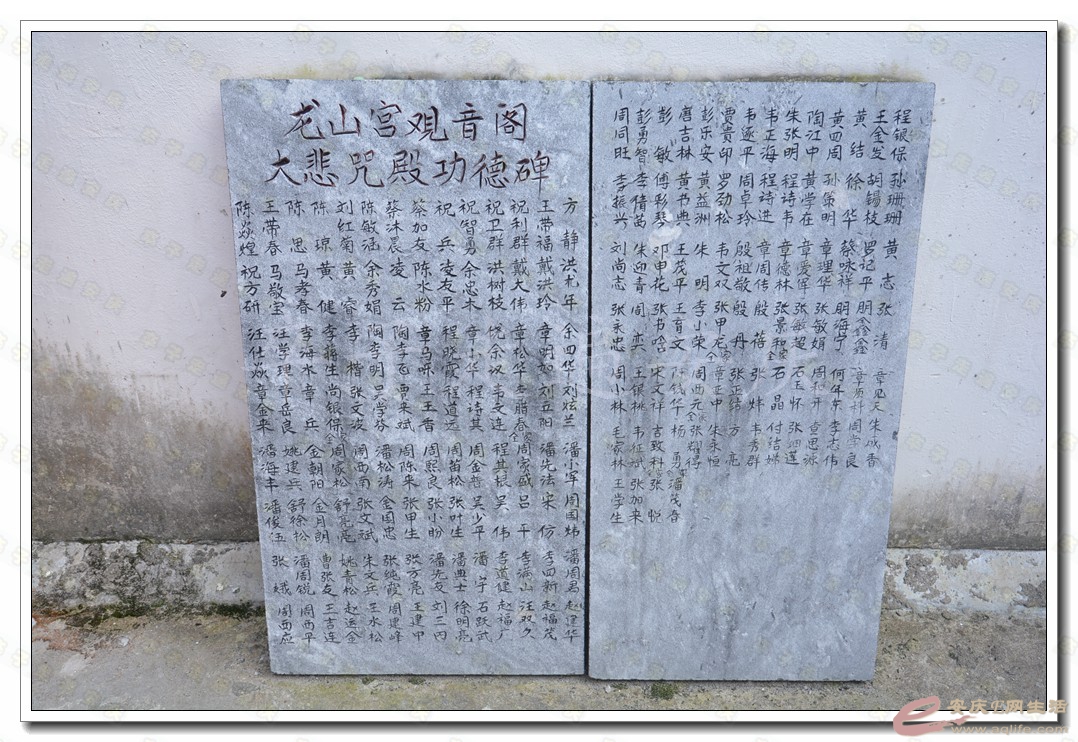 龙山宫观音阁
大悲咒殿功德碑
方静 洪尤年 余四华 刘炫兰 潘小军 周国炜 潘周易 赵建华
王带福 戴洪玲 章明如 刘立阳 潘先法 宋仿 李四新 赵福茂
祝利群 戴大伟 章松华 李腊春全家 周家盛 吕平 李满山 汪双久
祝卫群 洪树枝 饶余权 韦文连 程其根 吴伟 李道健 赵福广
祝智勇 余忠木 章小华 程诗其 周金哲 吴少平 潘宇 石跃武
祝兵 凌友平 程晓霞 程道远 周苗松 张叶生 潘典士 徐明亮
蔡加友 陈水粉 章马咪 王王香 周熙良 张小盼 潘先友 刘三丙
蔡沐晨 凌云 陶李飞 贾来斌 周陈来 张甲生 张万亮 王建中
陈敏涵 余秀娟 陶李明 吴学芬 潘松涛 金国忠 张纯霞 周建峰
刘红菊 黄睿 李楷 张文友 闹西南 张文斌 朱文兵 王水松
陈琼 黄健 李将生 尚银保全家 周家松 舒亮亮 姚青松 赵运全
陈思 马孝春 李海木 章兵 金朝阳 金月朗 曹张友 王吉连
王带春 马敬宝 汪学理 章岳良 姚建兵 舒徐松 潘周锐 周西平
陈焱煌 祝方研 汪仕焱 章金来 潘海丰 潘俊伍 张娥 周西应
程银保 孙珊珊 黄志 张清 章见天 朱成香
王金发 胡锡枝 罗记平 鑫鑫 周学良
黄结 徐华 蔡咏祥 海宁 何年东 李志伟
黄四周 孙策明 章理华 张敏娟 周和开 查思源
陶江中 黄学在 章爱军 张敏超 石玉怀 张迎莲
朱张明 程诗韦 章德林 张景和全家 石晶 付结娣
韦正海 程诗进 章周传 殷蓓 张炜 韦秀群
韦逐平 周卓玲 殷祖敬 殷丹 张正结 方亮
贾贵印 罗劲松 韦文双 张甲龙全家 章正中 朱永恒
彭乐安 黄益洲 朱明 李小荣 周西元全家 张耀得
唐吉林 黄书典 王茂平 王育文 阮钱华 杨勇军 潘茂春
彭敏 傅彩琴 邓申花 张书晗 宋文祥 吉致科 张悦
彭勇智 李倩茜 朱迎青 周奕 王银桃 韦征斌 张加来
周同旺 李振兴 刘尚志 张永忠 周小林 王家林 王学生
安庆E网生活
www.aqlife.com